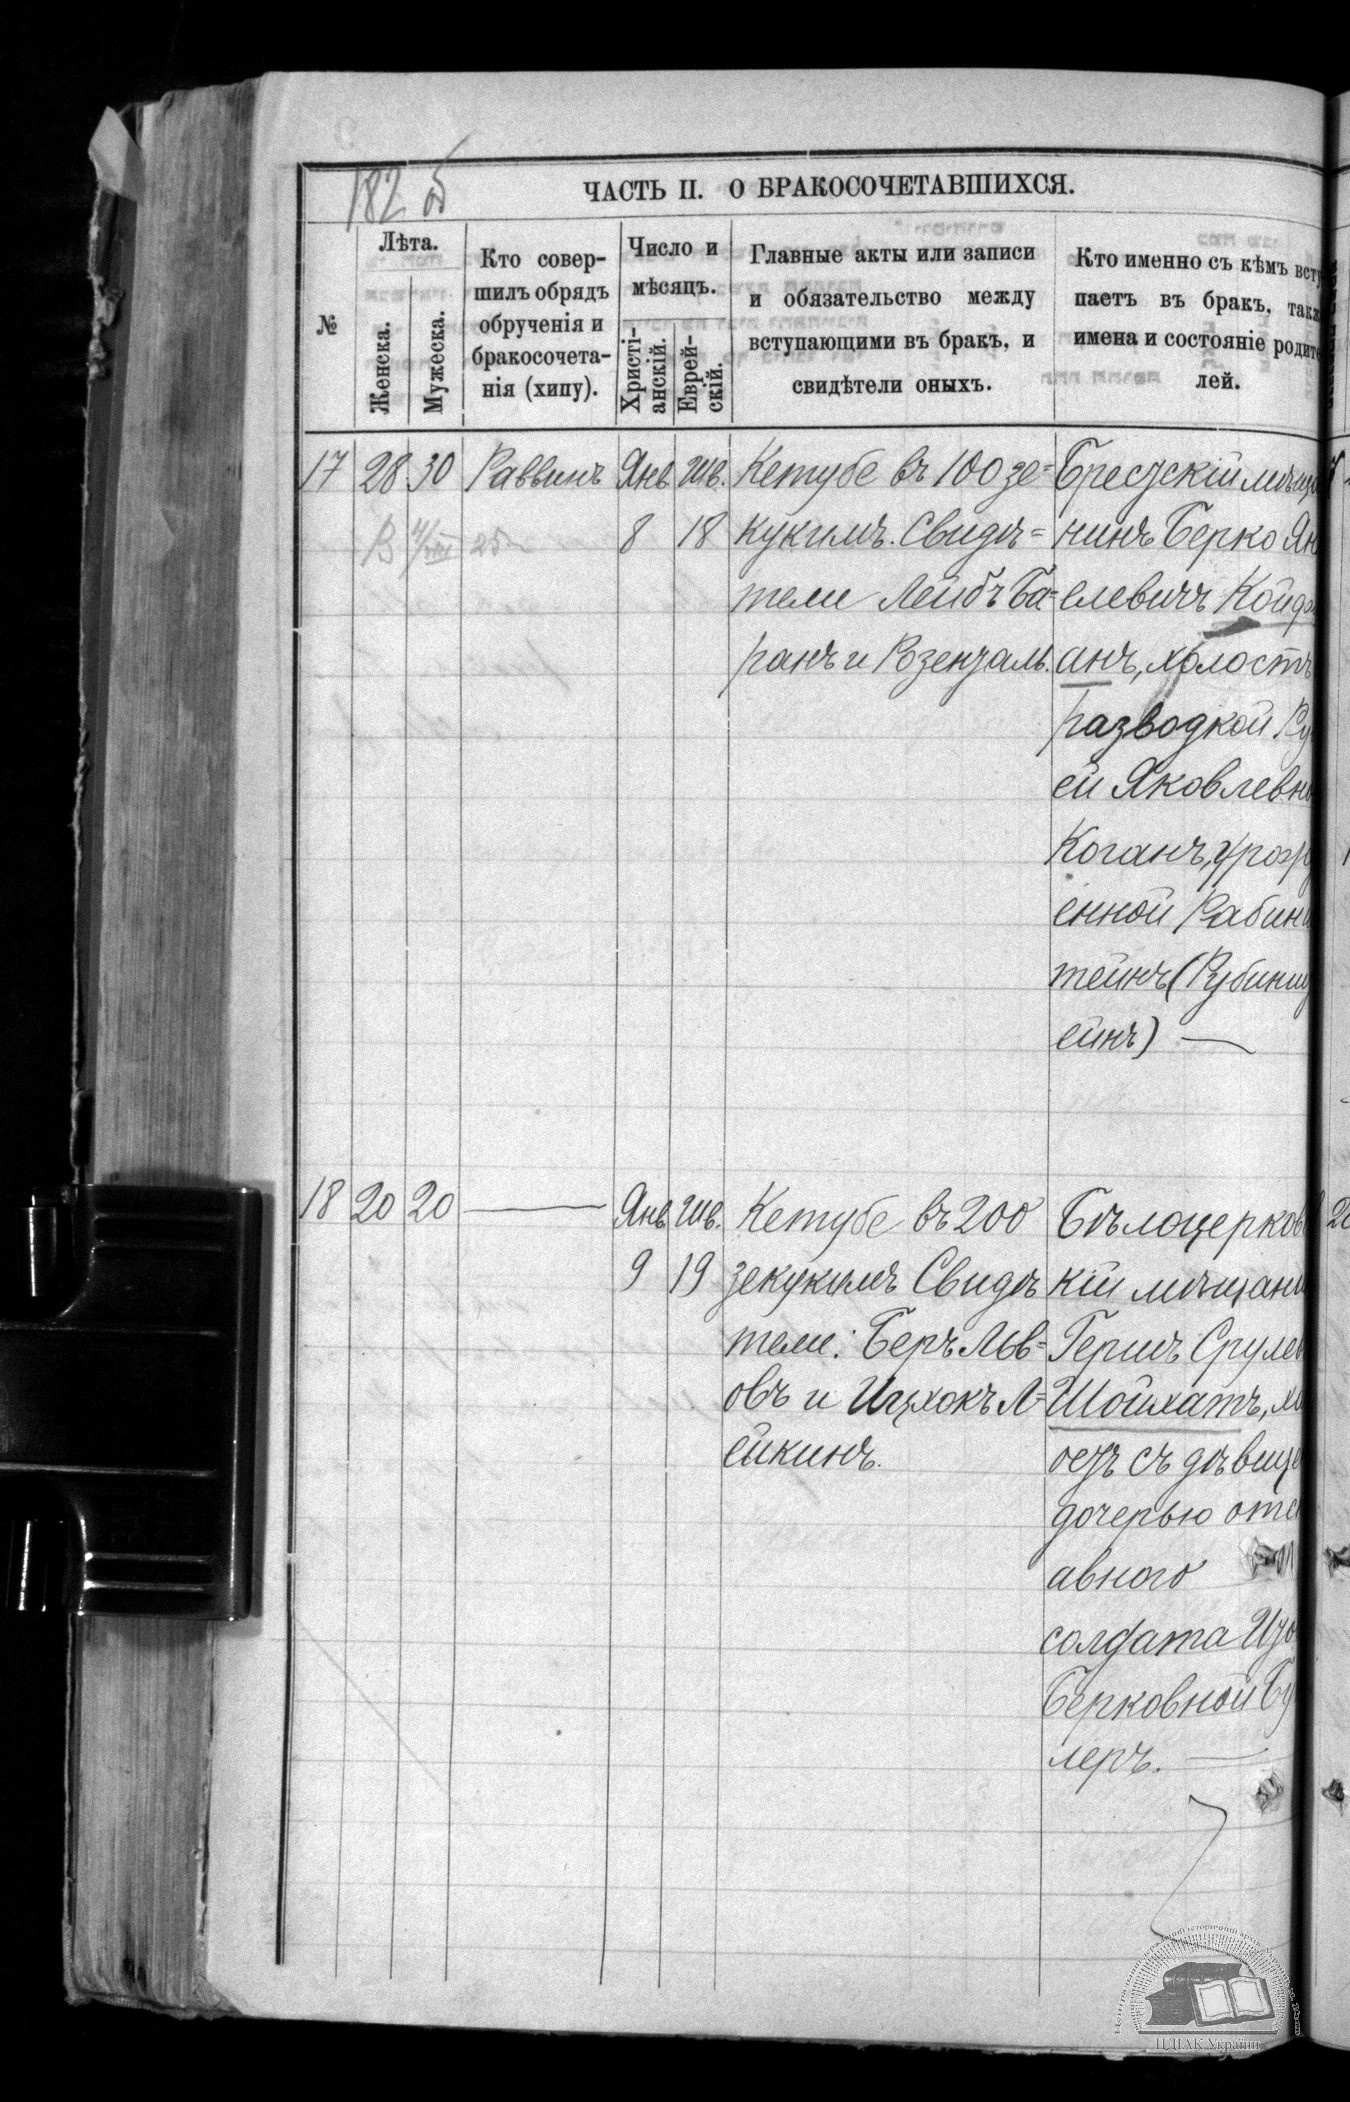 182 об
ЧАСТЬ II. О БРАКОСОЧЕТАВШИХСЯ.
№
Лѣта.
Женска.
Мужеска.
Кто совер-
шилъ обрядъ
обрученія и
бракосочета-
нія (хипу).
Число и
мѣсяцъ.
Христі-
анскій.
Еврей-
скій.
Главные акты или записи
и обязательство между
вступающими въ бракъ, и
свидѣтели оныхъ.
Кто именно съ кѣмъ всту
паетъ въ бракъ, такж
имена и состояніе родите
лей.
17 28 30 Раввинъ Янв. Шв.
8 18
Кетубе въ 100 зе=
кукимъ. Свидѣ=
тели Лейбъ Ба=
ранъ и Розенталь.
Брестскій мѣща
нинъ Берко Ян
елевичъ Койфм
анъ, холостъ
разводкой Ру
ей Яковлевн
Коганъ, урожд
енной Рабин
тейнъ (Рубинш
ейнъ)
18 20 20 Янв. Шв.
9 19
Кетубе въ 200
зекукимъ Свидѣ
тели: Беръ Льв=
овъ и Ицхокъ Л=
ейкинъ.
Бѣлоцерковс
кій мѣщани
Гершъ Срулев
Шойхатъ, хо
остъ съ дѣвице
дочерью отс
авного
солдата
Берковной Бу
леръ.
ЦДІАК України